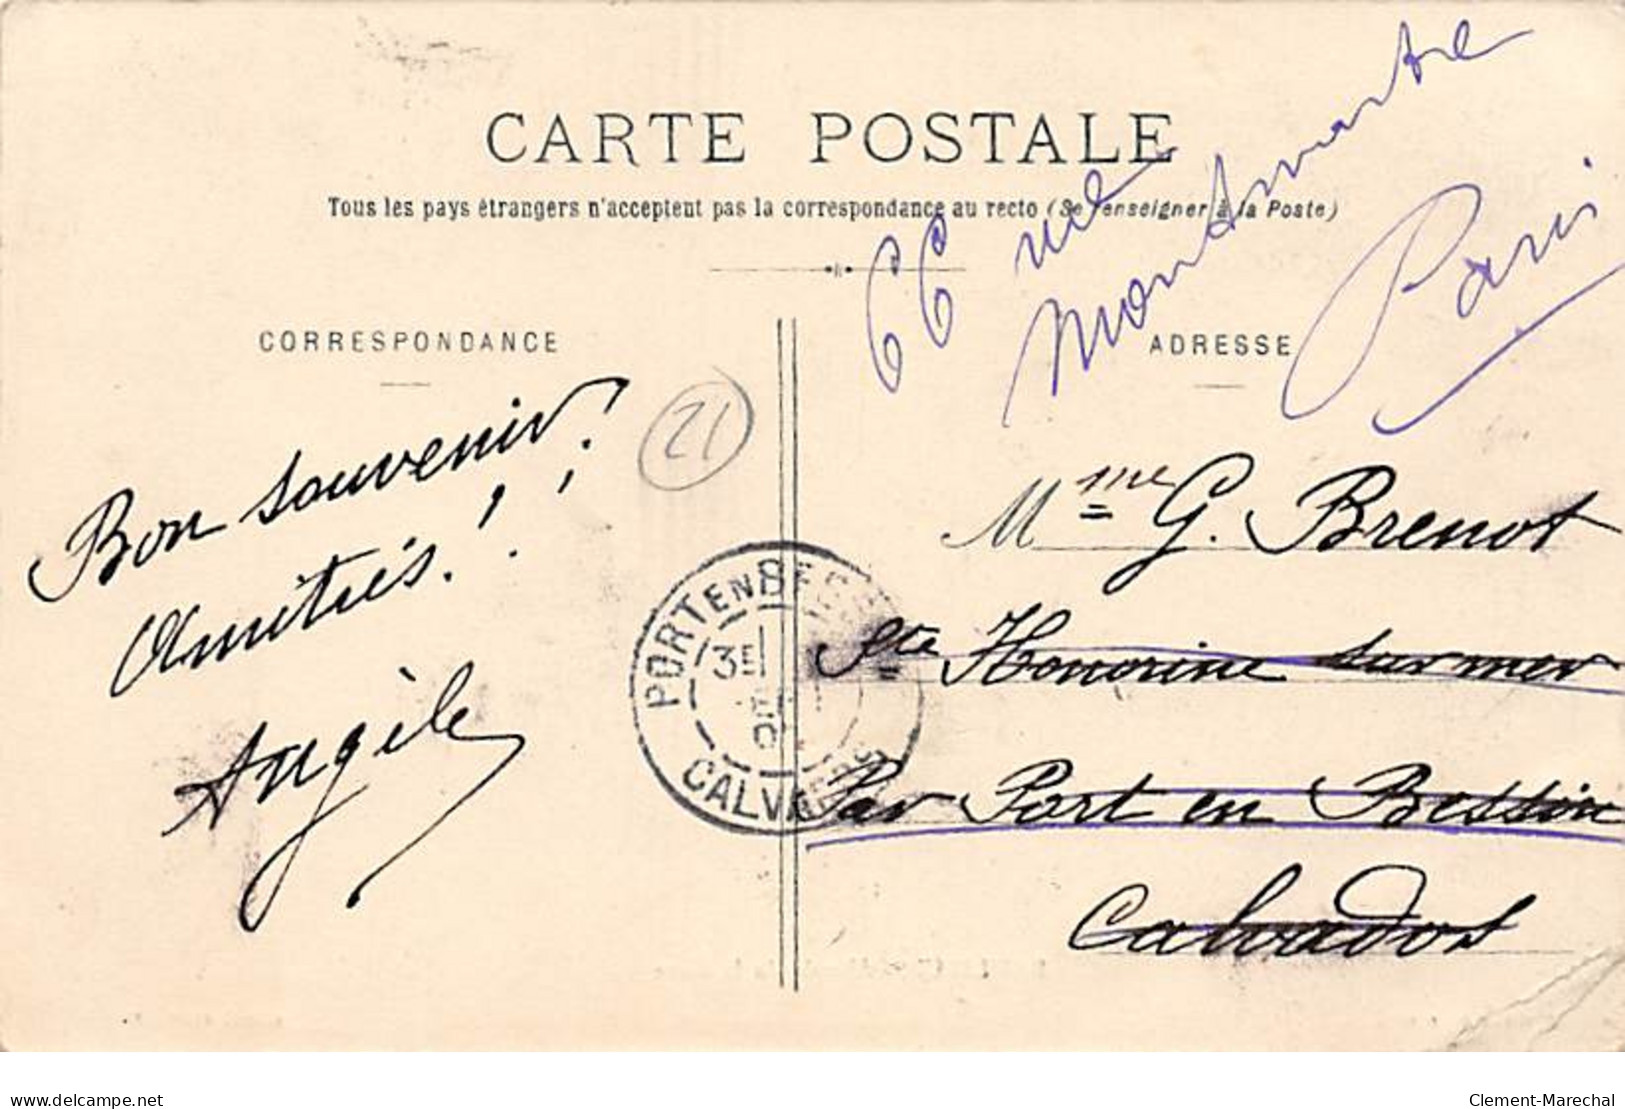 CARTE POSTALE
Tous les pays étrangers n'acceptent pas la correspondance au recto (Se renseigner à la Poste)
66 rue
Montmartre
Paris
CORRESPONDANCE
ADRESSE
21
Bon souvenir!
Amitiés!
Angèle
Mme G. Brenot
Ste Honorine sur mer
Par Port en Bessin
Calvados
PORT EN BESSIN
3E
CALVADOS
delcampe.net
Clement-Marechal